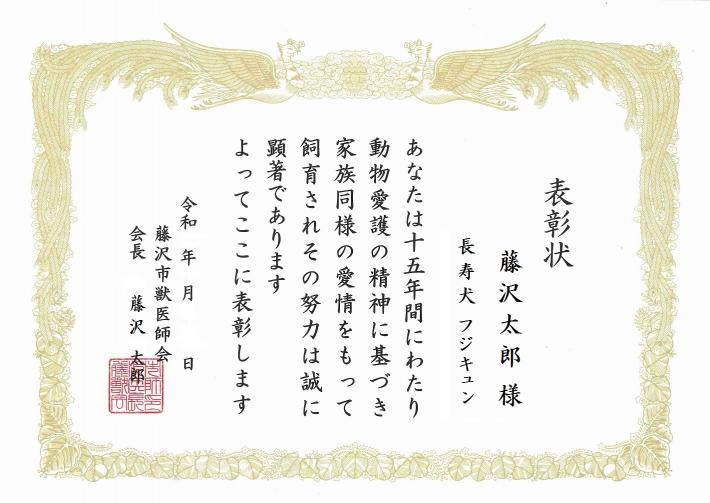 表彰状
藤沢太郎 様
長寿犬 フジキュン
あなたは十五年間にわたり
動物愛護の精神に基づき
家族同様の愛情をもって
飼育されその努力は誠に
顕著であります
よってここに表彰します
令和 年 月 日
藤沢市獣医師会
会長 藤沢 太郎